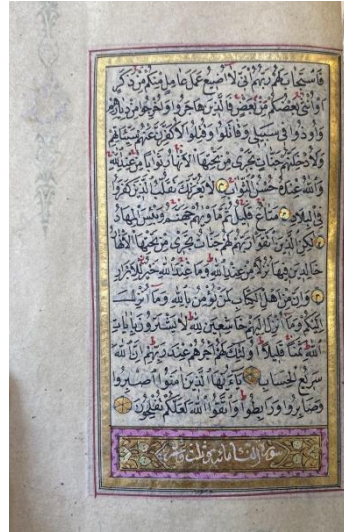 فَاسْتَجَابَ لَهُمْ رَبُّهُمْ أَنِّي لَا أُضِيعُ عَمَلَ عَامِلٍ مِنْكُمْ مِنْ ذَكَرٍ
أَوْ أُنْثَى بَعْضُكُمْ مِنْ بَعْضٍ فَالَّذِينَ هَاجَرُوا وَأُخْرِجُوا مِنْ دِيَارِهِمْ
وَأُوذُوا فِي سَبِيلِي وَقَاتَلُوا وَقُتِلُوا لَأُكَفِّرَنَّ عَنْهُمْ سَيِّئَاتِهِمْ
وَلَأُدْخِلَنَّهُمْ جَنَّاتٍ تَجْرِي مِنْ تَحْتِهَا الْأَنْهَارُ ثَوَابًا مِنْ عِنْدِ اللَّهِ
وَاللَّهُ عِنْدَهُ حُسْنُ الثَّوَابِ لَا يَغُرَّنَّكَ تَقَلُّبُ الَّذِينَ كَفَرُوا
فِي الْبِلَادِ مَتَاعٌ قَلِيلٌ ثُمَّ مَأْوَاهُمْ جَهَنَّمُ وَبِئْسَ الْمِهَادُ
لَكِنِ الَّذِينَ اتَّقَوْا رَبَّهُمْ لَهُمْ جَنَّاتٌ تَجْرِي مِنْ تَحْتِهَا الْأَنْهَارُ
خَالِدِينَ فِيهَا نُزُلًا مِنْ عِنْدِ اللَّهِ وَمَا عِنْدَ اللَّهِ خَيْرٌ لِلْأَبْرَارِ
وَإِنَّ مِنْ أَهْلِ الْكِتَابِ لَمَنْ يُؤْمِنُ بِاللَّهِ وَمَا أُنْزِلَ
إِلَيْكُمْ وَمَا أُنْزِلَ إِلَيْهِمْ خَاشِعِينَ لِلَّهِ لَا يَشْتَرُونَ بِآيَاتِ
اللَّهِ ثَمَنًا قَلِيلًا أُولَئِكَ لَهُمْ أَجْرُهُمْ عِنْدَ رَبِّهِمْ إِنَّ اللَّهَ
سَرِيعُ الْحِسَابِ يَا أَيُّهَا الَّذِينَ آمَنُوا اصْبِرُوا
وَصَابِرُوا وَرَابِطُوا وَاتَّقُوا اللَّهَ لَعَلَّكُمْ تُفْلِحُونَ
سورة النسا مائة